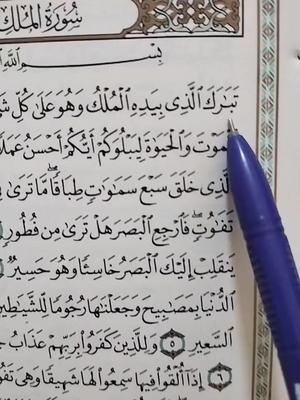 سُورَةُ المُلْكِ
بِسْمِ ٱللَّهِ
تَبَٰرَكَ ٱلَّذِى بِيَدِهِ ٱلْمُلْكُ وَهُوَ عَلَىٰ كُلِّ
وَٱلْحَيَوٰةَ لِيَبْلُوَكُمْ أَيُّكُمْ أَحْسَنُ عَمَلًا
ٱلَّذِى خَلَقَ سَبْعَ سَمَٰوَٰتٍ طِبَاقًا ۖ مَّا تَرَىٰ
تَفَٰوُتٍ ۖ فَٱرْجِعِ ٱلْبَصَرَ هَلْ تَرَىٰ مِن فُطُورٍ
يَنقَلِبْ إِلَيْكَ ٱلْبَصَرُ خَاسِئًا وَهُوَ حَسِيرٌ
ٱلدُّنْيَا بِمَصَٰبِيحَ وَجَعَلْنَٰهَا رُجُومًا لِّلشَّيَٰطِينِ
ٱلسَّعِيرِ ٥ وَلِلَّذِينَ كَفَرُوا۟ بِرَبِّهِمْ عَذَابُ
٦ إِذَآ أُلْقُوا۟ فِيهَا سَمِعُوا۟ لَهَا شَهِيقًا وَهِىَ